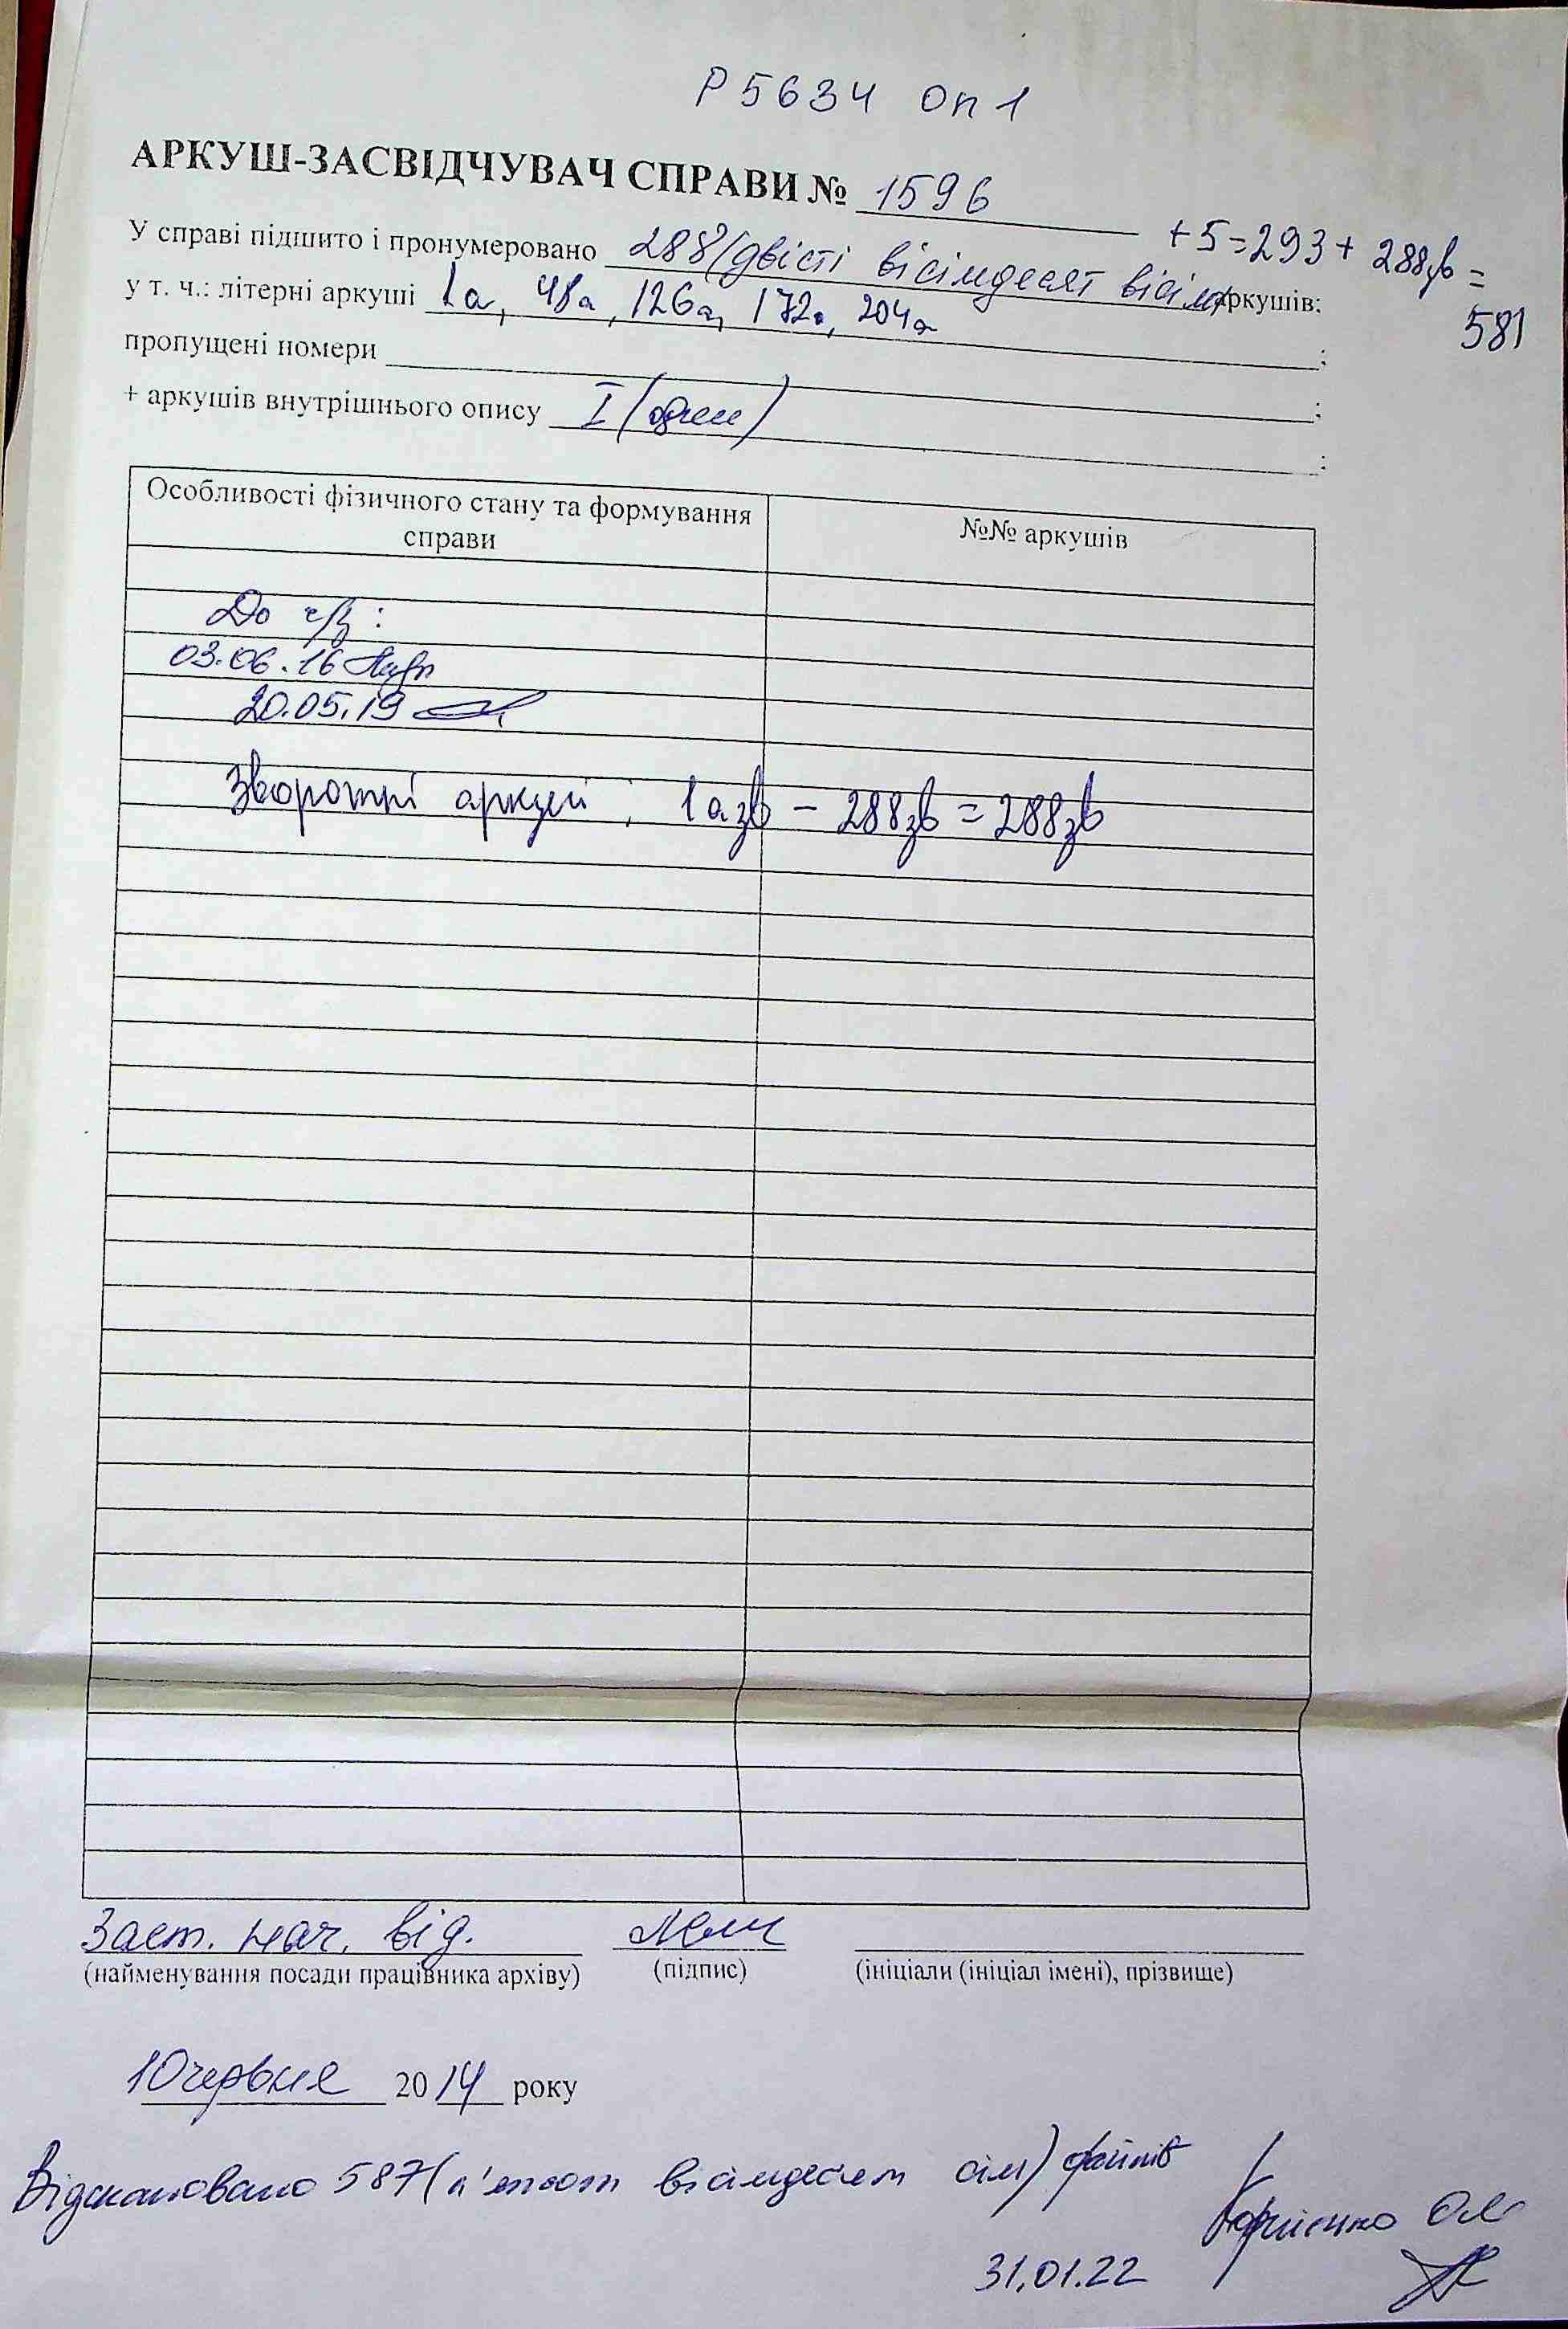 Р5634 Оп 1
АРКУШ-ЗАСВІДЧУВАЧ СПРАВИ № 1596
У справі підшито і пронумеровано 288 (двісті вісімдесят вісім) аркушів; +5=293+288зв=
581
у т. ч.: літерні аркуші 1а, 48а, 126а, 172а, 204а
пропущені номери ;
+ аркушів внутрішнього опису I (один) ;
;
Особливості фізичного стану та формування справи
№№ аркушів
До ч/з:
03.06.16
20.05.19
Зворотні аркуші: 1азв – 288зв = 288зв
Заст. нач. від.
(найменування посади працівника архіву) (підпис) (ініціали (ініціал імені), прізвище)
10 червня 2014 року
Відскановано 587 (п'ятсот вісімдесят сім) файлів
31.01.22